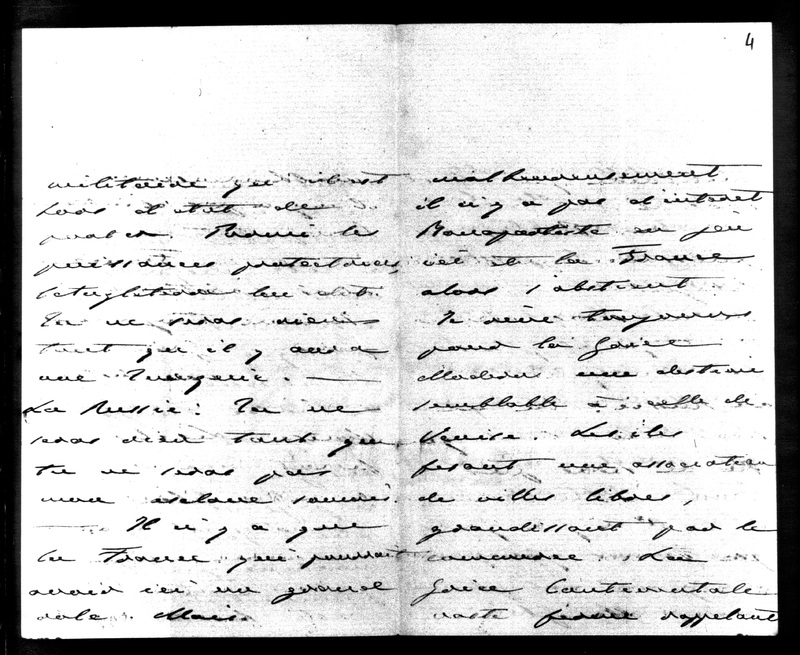 4
militaire qui est
hors d'état de
parler. Parmi les
puissances protectrices,
l'Angleterre lui dit.
Tu ne seras rien
tant qu'il y aura
une Turquie. —
La Russie: Tu ne
seras rien tant que
tu ne seras pas
mon esclave soumis.
— Il n'y a que
la France qui pourrait
avoir ici un grand
role. Mais
malheureusement
il n'y a pas d'intérêt
Bonapartiste en jeu
ici et la France
alors s'abstient
Je rève toujours
pour la Grèce
Moderne une destinée
semblable à celle de
Venise. Les iles
fesant une association
de villes libres,
grandissant par le
commerce La
Grèce Continentale
vaste ferme rappelant